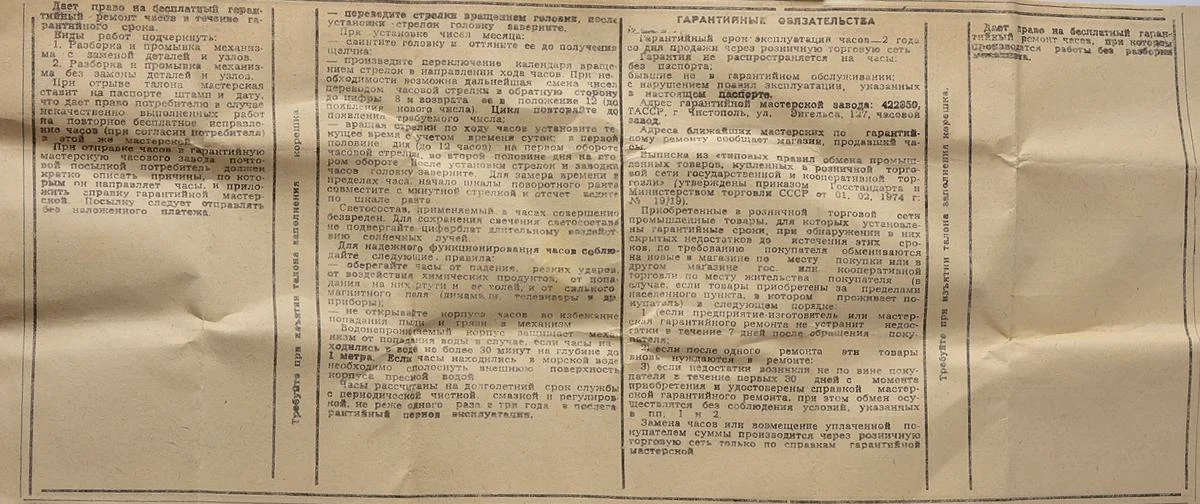 Дает право на бесплатный гаран-
тийный ремонт часов в течение га-
рантийного срока.
Виды работ подчеркнуть:
1. Разборка и промывка механиз-
ма с заменой деталей и узлов.
2. Разборка и промывка механиз-
ма без замены деталей и узлов.
При отрыве талона мастерская
ставит на паспорте штамп и дату,
что дает право потребителю в случае
некачественно выполненных работ
на повторное бесплатное исправле-
ние часов (при согласии потребителя)
в этой же мастерской.
При отправке часов в гарантийную
мастерскую часового завода почто-
вой посылкой потребитель должен
кратко описать причины, по кото-
рым он направляет часы, и прило-
жить справку гарантийной мастер-
ской. Посылку следует отправлять
без наложенного платежа.
Требуйте при изъятии талона заполнения корешка.
— переведите стрелки вращением головки, после
установки стрелок головку заверните.
При установке чисел месяца:
— свинтите головку и оттяните ее до получения
щелчка;
— произведите переключение календаря враще-
нием стрелок в направлении хода часов. При не-
обходимости возможна дальнейшая смена чисел
переводом часовой стрелки в обратную сторону
до цифры 8 и возврата ее в положение 12 (до
появления нового числа). Цикл повторяйте до
появления требуемого числа;
— вращая стрелки по ходу часов установите те-
кущее время с учетом времени суток: в первой
половине дня (до 12 часов) на первом обороте
часовой стрелки, во второй половине дня на вто-
ром обороте. После установки стрелок и заводки
часов головку заверните. Для замера времени в
пределах часа, начало шкалы поворотного ранта
совместите с минутной стрелкой и отсчет ведите
по шкале ранта
Светосостав, применяемый в часах совершенно
безвреден. Для сохранения свечения светосостава
не подвергайте циферблат длительному воздейст-
вию солнечных лучей.
Для надежного функционирования часов соблю-
дайте следующие правила:
— оберегайте часы от падения, резких ударов,
от воздействия химических продуктов, от попа-
дания на них ртути и ее солей, и от сильного
магнитного поля (динамики, телевизоры и др
приборы);
— не открывайте корпуса часов во избежание
попадания пыли и грязи в механизм
Водонепроницаемый корпус защищает меха-
низм от попадания воды в случае, если часы на-
ходились в воде не более 30 минут на глубине до
1 метра. Если часы находились в морской воде
необходимо сполоснуть внешнюю поверхность
корпуса пресной водой
Часы рассчитаны на долголетний срок службы
с периодической чисткой, смазкой и регулиров-
кой, не реже одного раза в три года в послега-
рантийный период эксплуатации.
ГАРАНТИЙНЫЕ ОБЯЗАТЕЛЬСТВА
Гарантийный срок эксплуатации часов—2 года
со дня продажи через розничную торговую сеть
Гарантия не распространяется на часы:
без паспорта;
бывшие не в гарантийном обслуживании;
с нарушением правил эксплуатации, указанных
в настоящем паспорте.
Адрес гарантийной мастерской завода: 422950,
ТАССР, г Чистополь, ул. Энгельса, 127, часовой
завод.
Адреса ближайших мастерских по гарантий-
ному ремонту сообщает магазин, продавший ча-
сы.
Выписка из «типовых правил обмена промыш-
ленных товаров, купленных в розничной торго-
вой сети государственной и кооперативной тор-
говли» (утверждены приказом Госстандарта и
Министерством торговли СССР от 01. 02. 1974 г:
№ 19/19).
Приобретенные в розничной торговой сети
промышленные товары, для которых установле-
ны гарантийные сроки, при обнаружении в них
скрытых недостатков до истечения этих сро-
ков, по требованию покупателя обмениваются
на новые в магазине по месту покупки или в
другом магазине гос. или кооперативной
торговли по месту жительства покупателя (в
случае, если товары приобретены за пределами
населенного пункта, в котором проживает по-
купатель) в следующем порядке:
1) если предприятие-изготовитель или мастер-
ская гарантийного ремонта не устранит недос-
татки в течение 7 дней после обращения поку-
пателя;
2) если после одного ремонта эти товары
вновь нуждаются в ремонте:
3) если недостатки возникли не по вине поку-
пателя в течение первых 30 дней с момента
приобретения и удостоверены справкой мастер-
ской гарантийного ремонта, при этом обмен осу-
ществляется без соблюдения условий, указанных
в пп. 1 и 2.
Замена часов или возмещение уплаченной по-
купателем суммы производится через розничную
торговую сеть только по справкам гарантийной
мастерской
Требуйте при изъятии талона заполнения корешка.
Дает право на бесплатный гаран-
тийный ремонт часов, при котором
производятся работы без разборки
механизма.